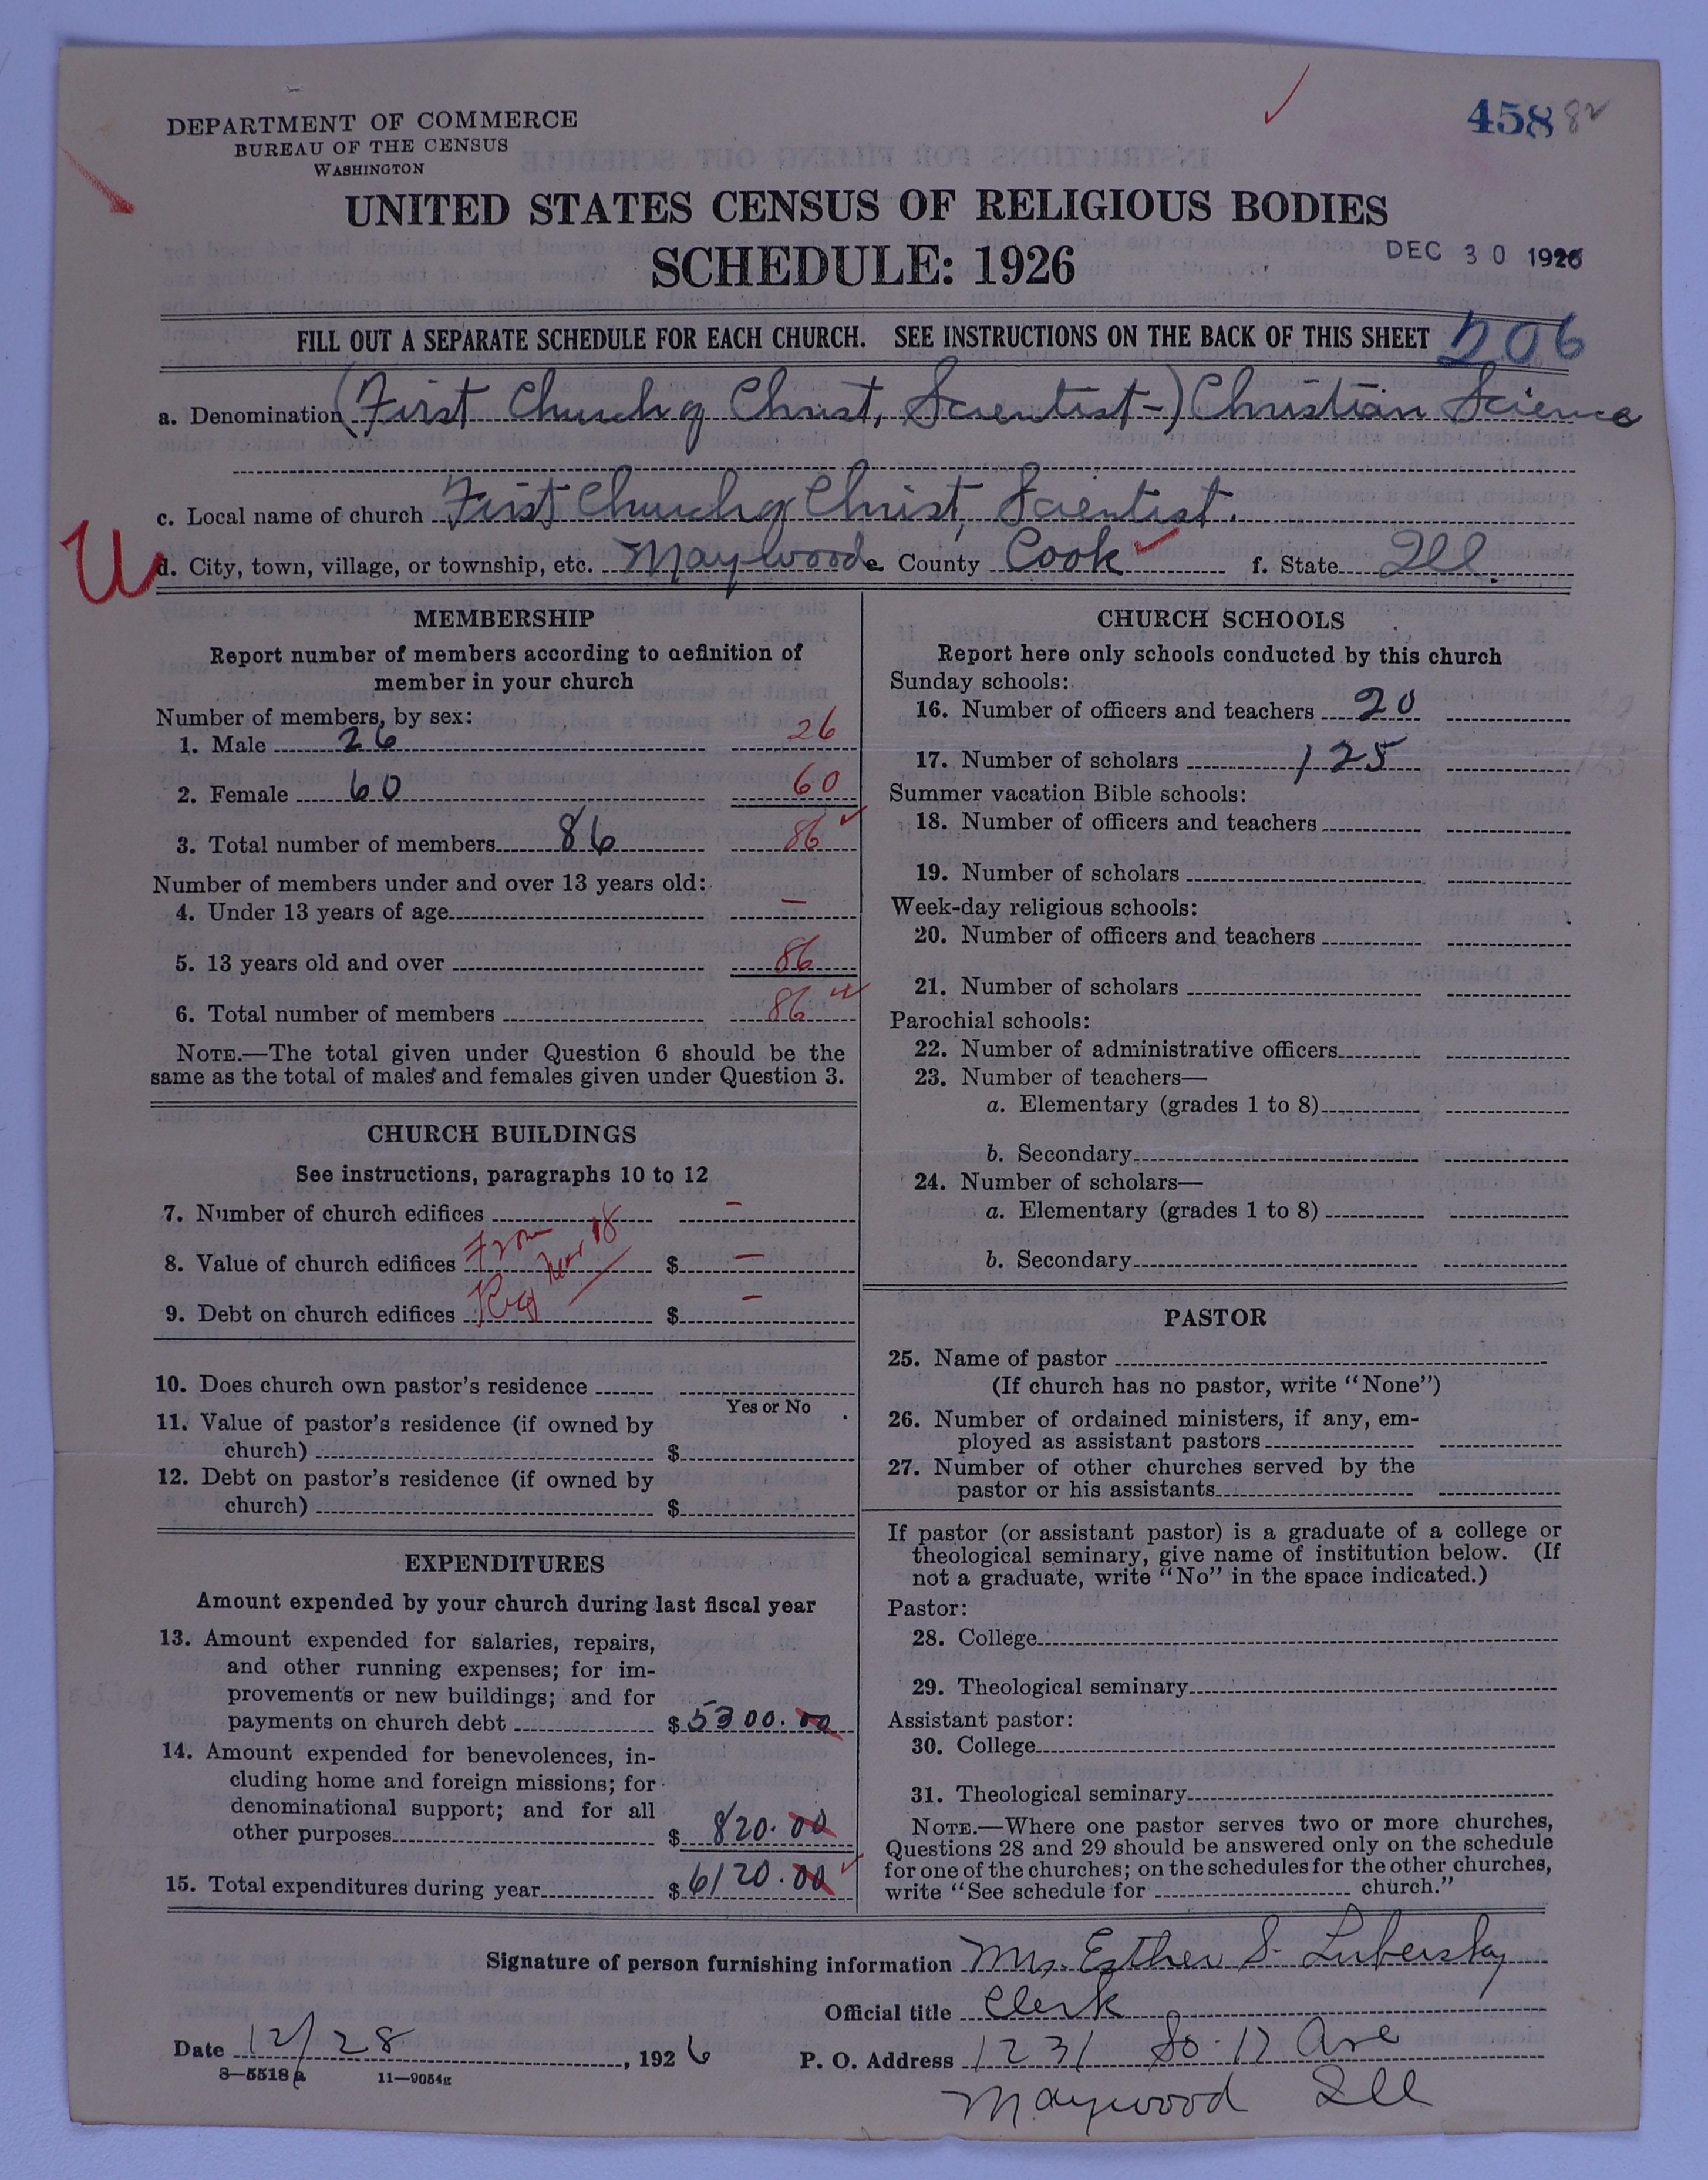 DEPARTMENT OF COMMERCE
BUREAU OF THE CENSUS
WASHINGTON
458 82
UNITED STATES CENSUS OF RELIGIOUS BODIES
SCHEDULE: 1926
DEC 30 1926
FILL OUT A SEPARATE SCHEDULE FOR EACH CHURCH. SEE INSTRUCTIONS ON THE BACK OF THIS SHEET 206
a. Denomination (First Church of Christ, Scientist-) Christian Science
c. Local name of church First Church of Christ, Scientist.
U
d. City, town, village, or township, etc. Maywood e. County Cook f. State Ill.
MEMBERSHIP
Report number of members according to definition of
member in your church
Number of members, by sex:
1. Male 26 26
2. Female 60 60
3. Total number of members 86 86
Number of members under and over 13 years old:
4. Under 13 years of age –
5. 13 years old and over 86
6. Total number of members 86
NOTE.—The total given under Question 6 should be the
same as the total of males and females given under Question 3.
CHURCH BUILDINGS
See instructions, paragraphs 10 to 12
7. Number of church edifices –
8. Value of church edifices From $ –
9. Debt on church edifices $ –
10. Does church own pastor's residence
Yes or No
11. Value of pastor's residence (if owned by
church) $
12. Debt on pastor's residence (if owned by
church) $
EXPENDITURES
Amount expended by your church during last fiscal year
13. Amount expended for salaries, repairs,
and other running expenses; for im-
provements or new buildings; and for
payments on church debt $ 5300.00
14. Amount expended for benevolences, in-
cluding home and foreign missions; for
denominational support; and for all
other purposes $ 820.00
15. Total expenditures during year $ 6120.00
CHURCH SCHOOLS
Report here only schools conducted by this church
Sunday schools:
16. Number of officers and teachers 20
17. Number of scholars 125
Summer vacation Bible schools:
18. Number of officers and teachers
19. Number of scholars
Week-day religious schools:
20. Number of officers and teachers
21. Number of scholars
Parochial schools:
22. Number of administrative officers
23. Number of teachers—
a. Elementary (grades 1 to 8)
b. Secondary
24. Number of scholars—
a. Elementary (grades 1 to 8)
b. Secondary
PASTOR
25. Name of pastor
(If church has no pastor, write "None")
26. Number of ordained ministers, if any, em-
ployed as assistant pastors
27. Number of other churches served by the
pastor or his assistants
If pastor (or assistant pastor) is a graduate of a college or
theological seminary, give name of institution below. (If
not a graduate, write "No" in the space indicated.)
Pastor:
28. College
29. Theological seminary
Assistant pastor:
30. College
31. Theological seminary
NOTE.—Where one pastor serves two or more churches,
Questions 28 and 29 should be answered only on the schedule
for one of the churches; on the schedules for the other churches,
write "See schedule for church."
Signature of person furnishing information Mrs. Esther S. Lubersky
Official title Clerk
Date 12/28, 1926 P. O. Address 1231 So. 17 Ave
8—5518a 11—9054g
Maywood Ill